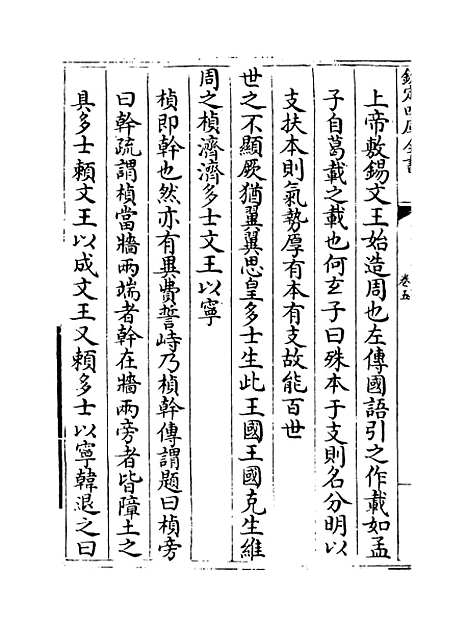 欽定四庫全書
卷五
上帝敷錫文王始造周也左傳國語引之作載如孟
子自葛載之載也何玄子曰殊本于支則名分明以
支扶本則氣勢厚有本有支故能百世
世之不顯厥猶翼翼思皇多士生此王國王國克生維
周之楨濟濟多士文王以寧
楨即幹也然亦有異費誓峙乃楨幹傳謂題曰楨旁
曰幹疏謂楨當牆兩端者幹在牆兩旁者皆障土之
具多士賴文王以成文王又賴多士以寧韓退之曰